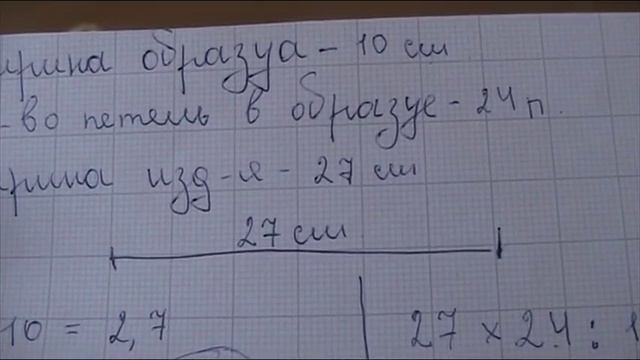 ирина образца - 10 см
-во петель в образце - 24 п.
рина изд-я - 27 см
27 см
10 = 2,7 27 × 24 : 1